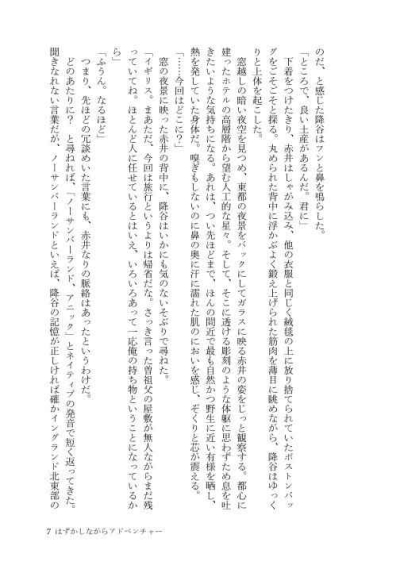 のだ、と感じた降谷はツンと鼻を鳴らした。
「ところで、良い土産があるんだ。君に」
下着をつけたきり、赤井はしゃがみ込み、他の衣服と同じく絨毯の上に放り捨てられていたボストンバッ
グをごそごそと探る。丸められた背中に浮かぶよく鍛え上げられた筋肉を薄目に眺めながら、降谷はゆっく
りと上体を起こした。
窓越しの暗い夜空を見つめ、東都の夜景をバックにしてガラスに映る赤井の姿をじっと観察する。都心に
建ったホテルの高層階から望む人工的な星々。そして、そこに透ける彫刻のような体躯に思わずため息を吐
きたいような気持ちになる。あれは、つい先ほどまで、ほんの間近で最も自然かつ野生に近い有様を晒し、
熱を発していた身体だ。嗅ぎもしないのに鼻の奥に汗に濡れた肌のにおいを感じ、ぞくりと芯が震える。
「……今回はどこに？」
窓の夜景に映った赤井の背中に、降谷はいかにも気のないそぶりで尋ねた。
「イギリス。まあただ、今回は旅行というよりは帰省だな。さっき言った曽祖父の屋敷が無人ながらまだ残
っていてね。ほとんど人に任せているとはいえ、いろいろあって一応俺の持ち物ということになっているか
ら」
「ふうん。なるほど」
つまり、先ほどの冗談めいた言葉にも、赤井なりの脈絡はあったというわけだ。
どのあたりに？　と尋ねれば、「ノーサンバーランド、アニック」とネイティブの発音で短く返ってきた。
聞きなれない言葉だが、ノーサンバーランドといえば、降谷の記憶が正しければ確かイングランド北東部の
7 はずかしながらアドベンチャー